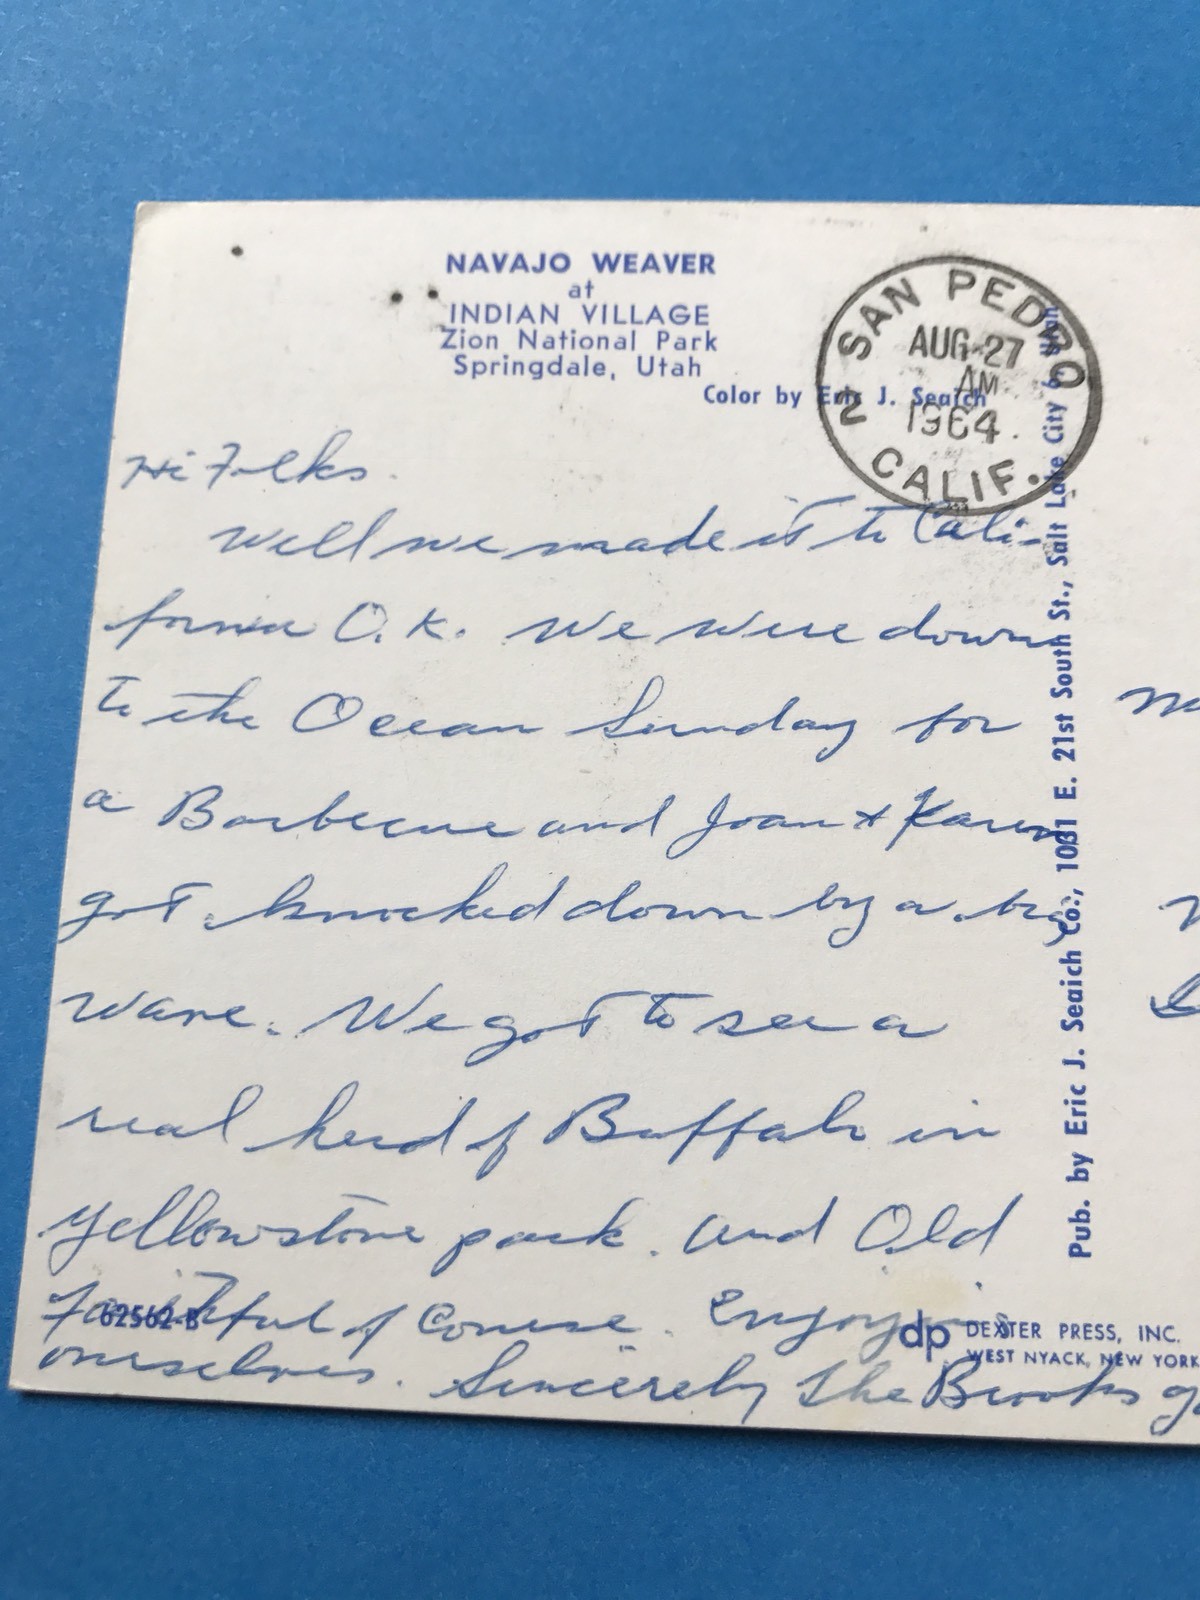 NAVAJO WEAVER
at
INDIAN VILLAGE
Zion National Park
Springdale, Utah
Color by Eric J. Seaich
SAN PEDRO
AUG 27
AM
1964
2
CALIF.
Hi Folks.
Well we made it to Cali-
fornia O.K. We were down
to the Ocean Sunday for
a Barbecue and Joan + Karen
got knocked down by a big
wave. We got to see a
real herd of Buffalo in
Yellowstone park. and Old
Faithful of Course. Enjoying
ourselves. Sincerely The Brooks
62562-B
Pub. by Eric J. Seaich Co., 1031 E. 21st South St., Salt Lake City 6, Utah
dp DEXTER PRESS, INC.
WEST NYACK, NEW YORK